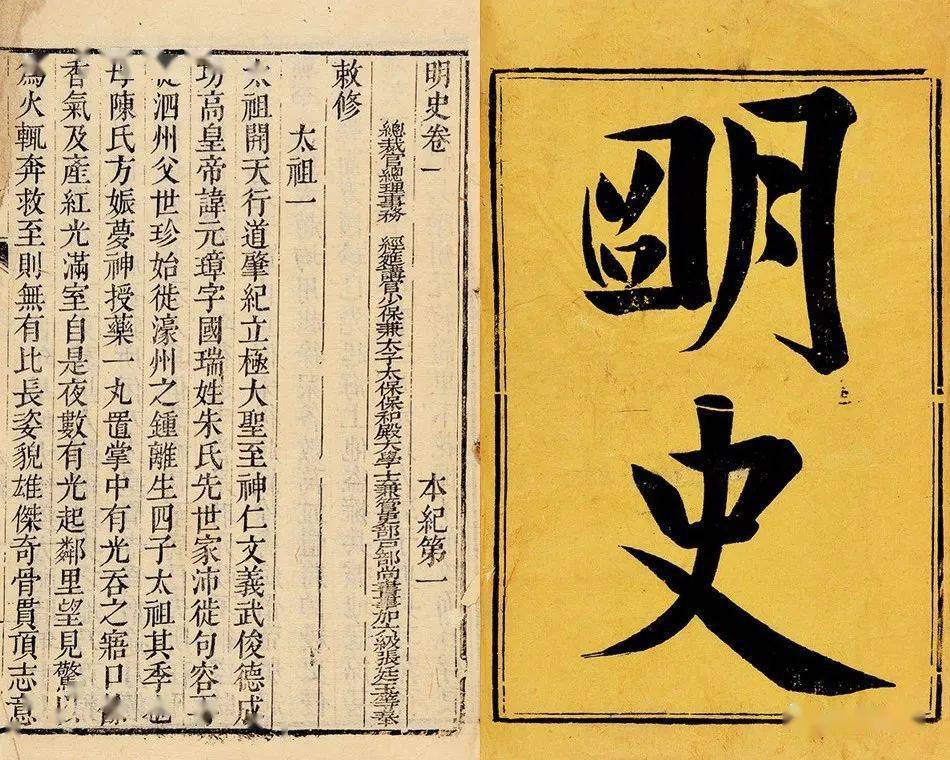 明史
明史卷一 本紀第一
總裁官總理事務 經筵講官少保兼太子太保保和殿大學士兼管吏部戶部尚書事加六級張廷玉等奉
敕修
太祖一
太祖開天行道肇紀立極大聖至神仁文義武俊德成
功高皇帝諱元璋字國瑞姓朱氏先世家沛徙句容再
徙泗州父世珍始徙濠州之鍾離生四子太祖其季也
母陳氏方娠夢神授藥一丸置掌中有光吞之寤口餘
香氣及產紅光滿室自是夜數有光起鄰里望見驚以
為火輒奔救至則無有比長姿貌雄傑奇骨貫頂志意